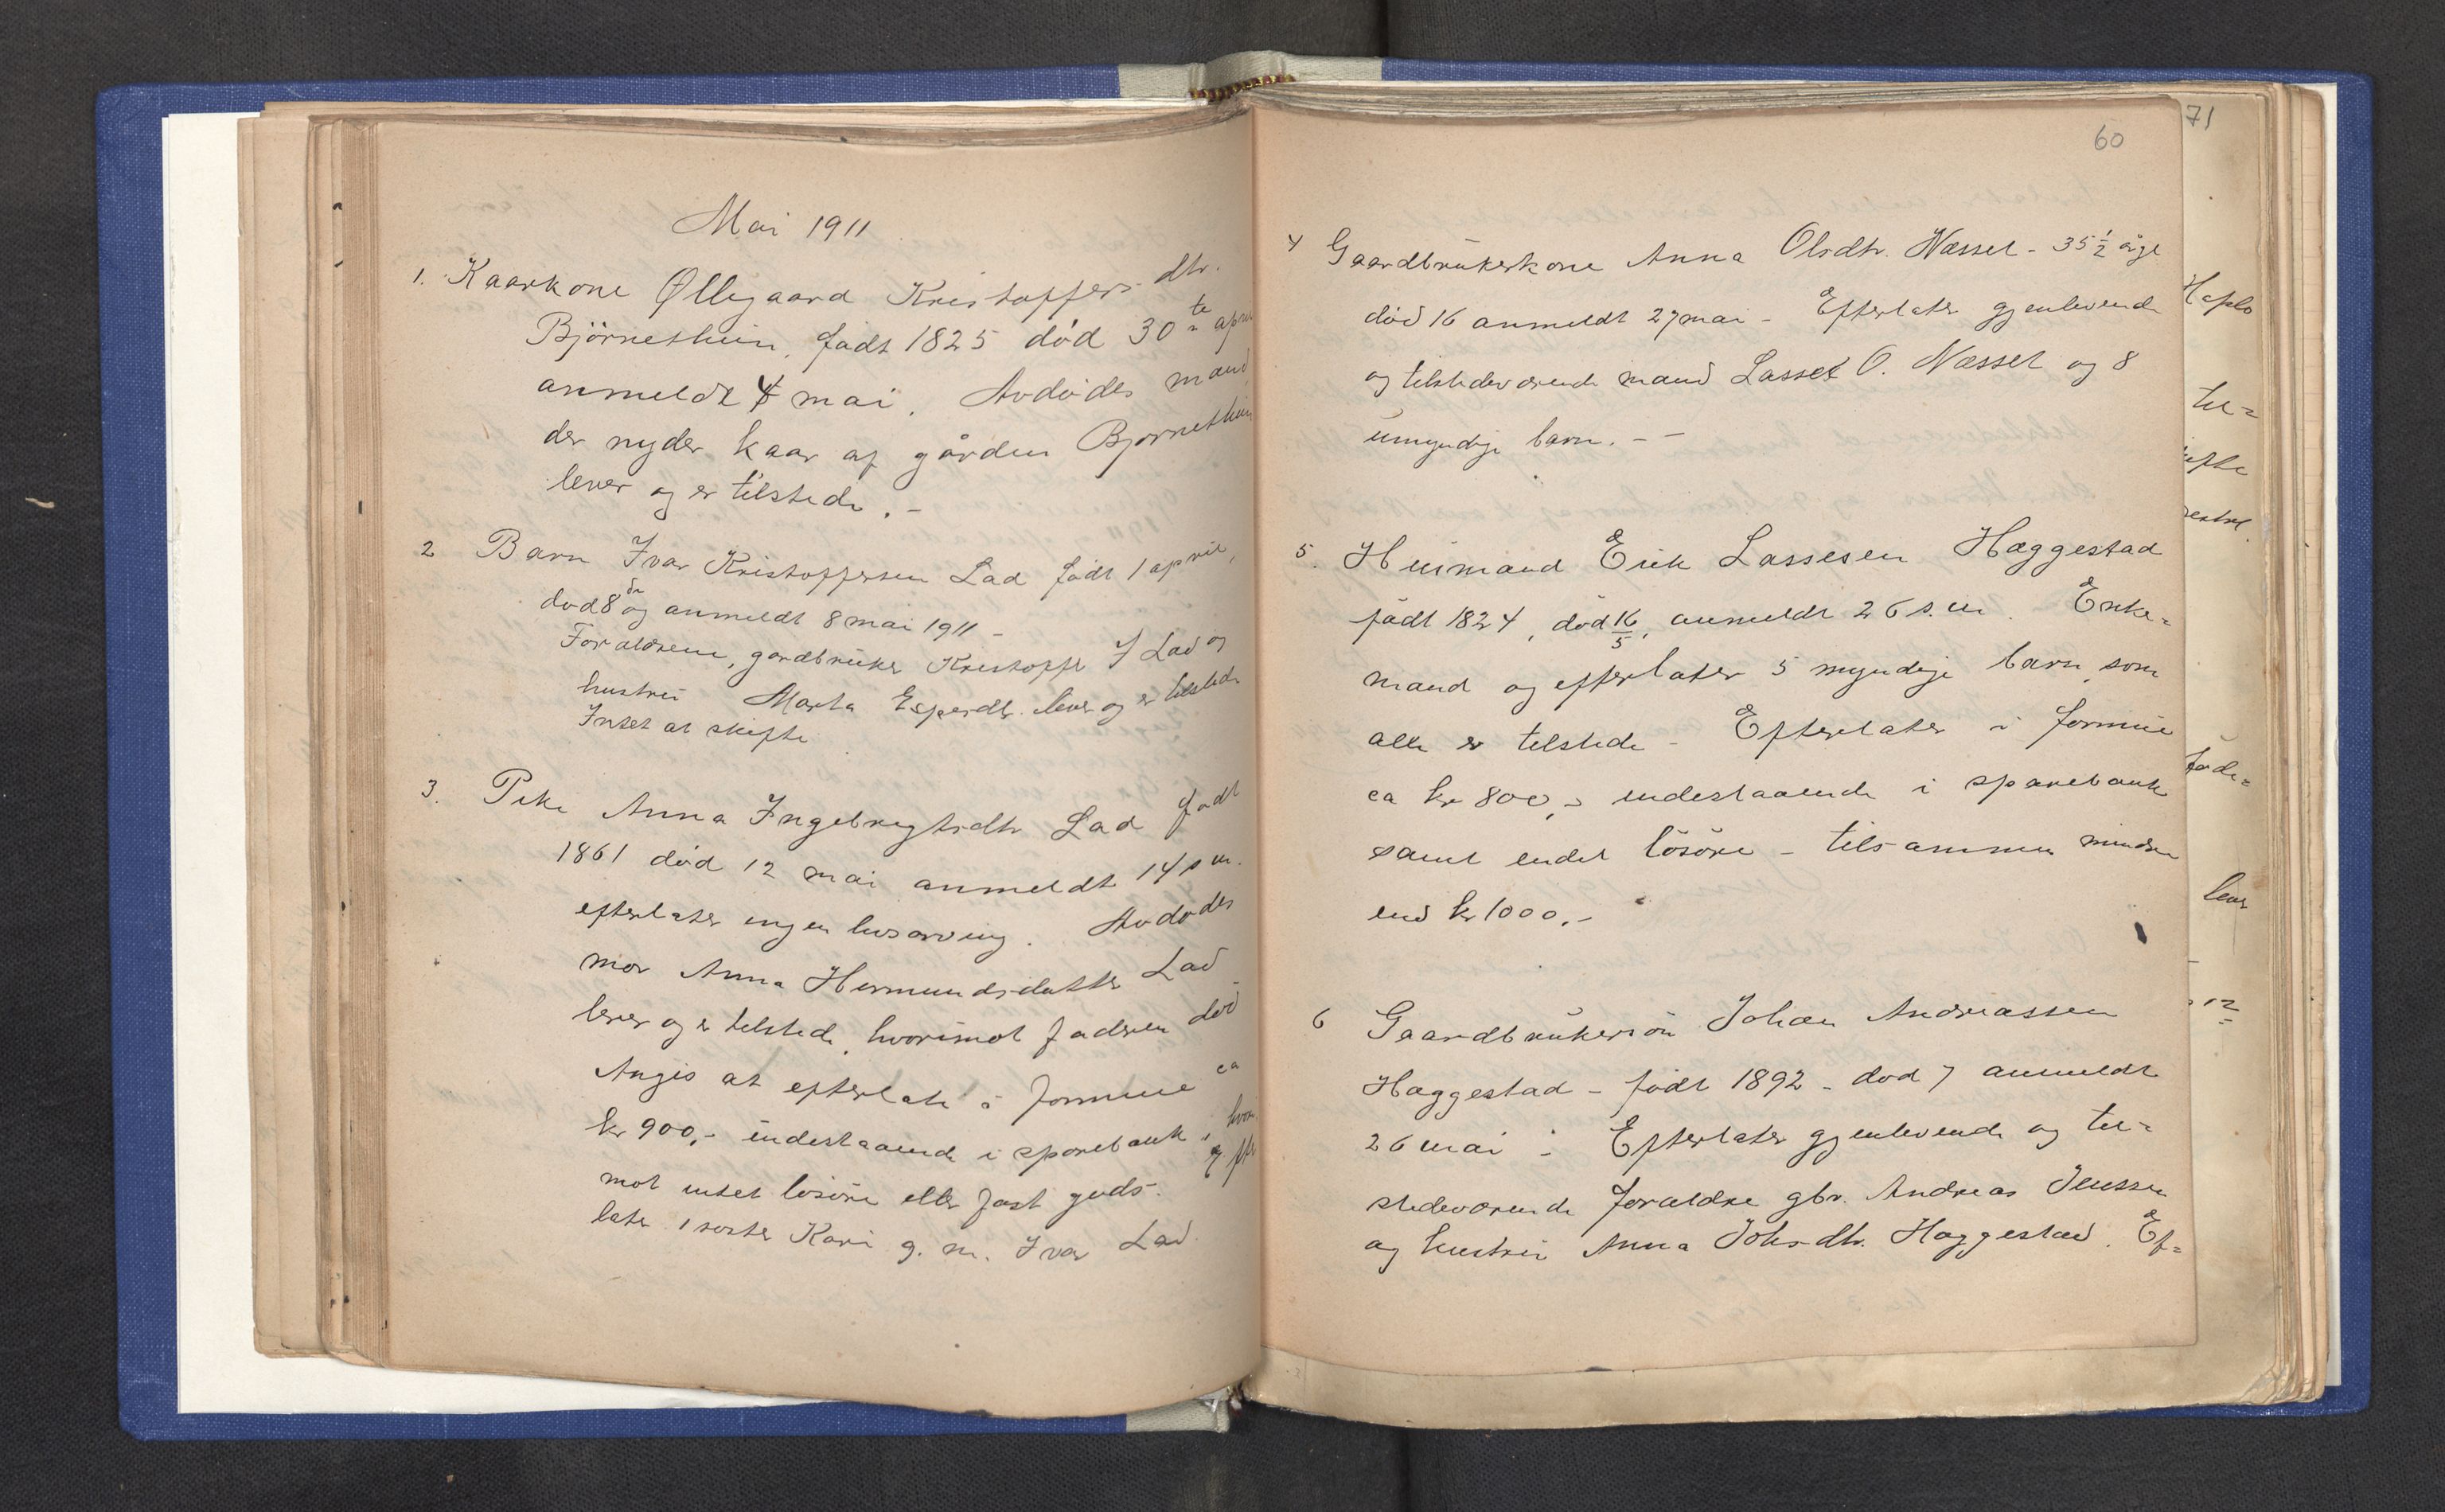 Mai 1911
1. Kaarkone Øllegaard Kristoffersdtr.
Björnethun, født 1825 død 30te april
anmeldt 4 mai. Avdødes mand,
der nyder kaar af gården Bjørnethun
lever og er tilstede. -
2 Barn Ivar Kristoffersen Lad født 1 april,
død 8de og anmeldt 8 mai 1911 -
Forældrene, gardbruker Kristoffer I Lad og
hustru Marta Espedtr. lever og er tilstede
Intet at skifte
3. Pike Anna Ingebrigtsdtr Lad født
1861 død 12 mai anmeldt 14 s m.
efterlater ingen livsarving. Avdødes
mor Anna Hermundsdatter Lad
lever og er tilstede, hvorimot faderen død
Angis at efterlate i formue ca
kr 900,- indestaaende i sparebank, hvor-
mot intet løsøre eller fast gods. Efter-
later 1 søster Kari g. m. Ivar Lad.
60
4 Gaardbrukerkone Anna Olsdtr. Næsset - 35 1/2 årig
død 16 anmeldt 27 mai - Efterlater gjenlevende
og tilstedeværende mand Lasse O. Næsset og 8
umyndige barn. - -
5. Husmand Erik Lassesen Hæggestad
født 1824, død 16/5, anmeldt 26 s. m. Enke-
mand og efterlater 5 myndige barn, som
alle er tilstede - Efterlater i formue
ca kr 800,- indestaaende i sparebank
samt endel løsøre - tilsammen mindre
end kr 1000,-
6 Gaardbrukersøn Johan Andreassen
Hæggestad - født 1892 - død 7 anmeldt
26 mai - Efterlater gjenlevende og til-
stedeværende forældre gbr. Andreas Jenssen
og hustru Anna Johsdtr. Hæggestad. Ef-
71
til-
lever
12